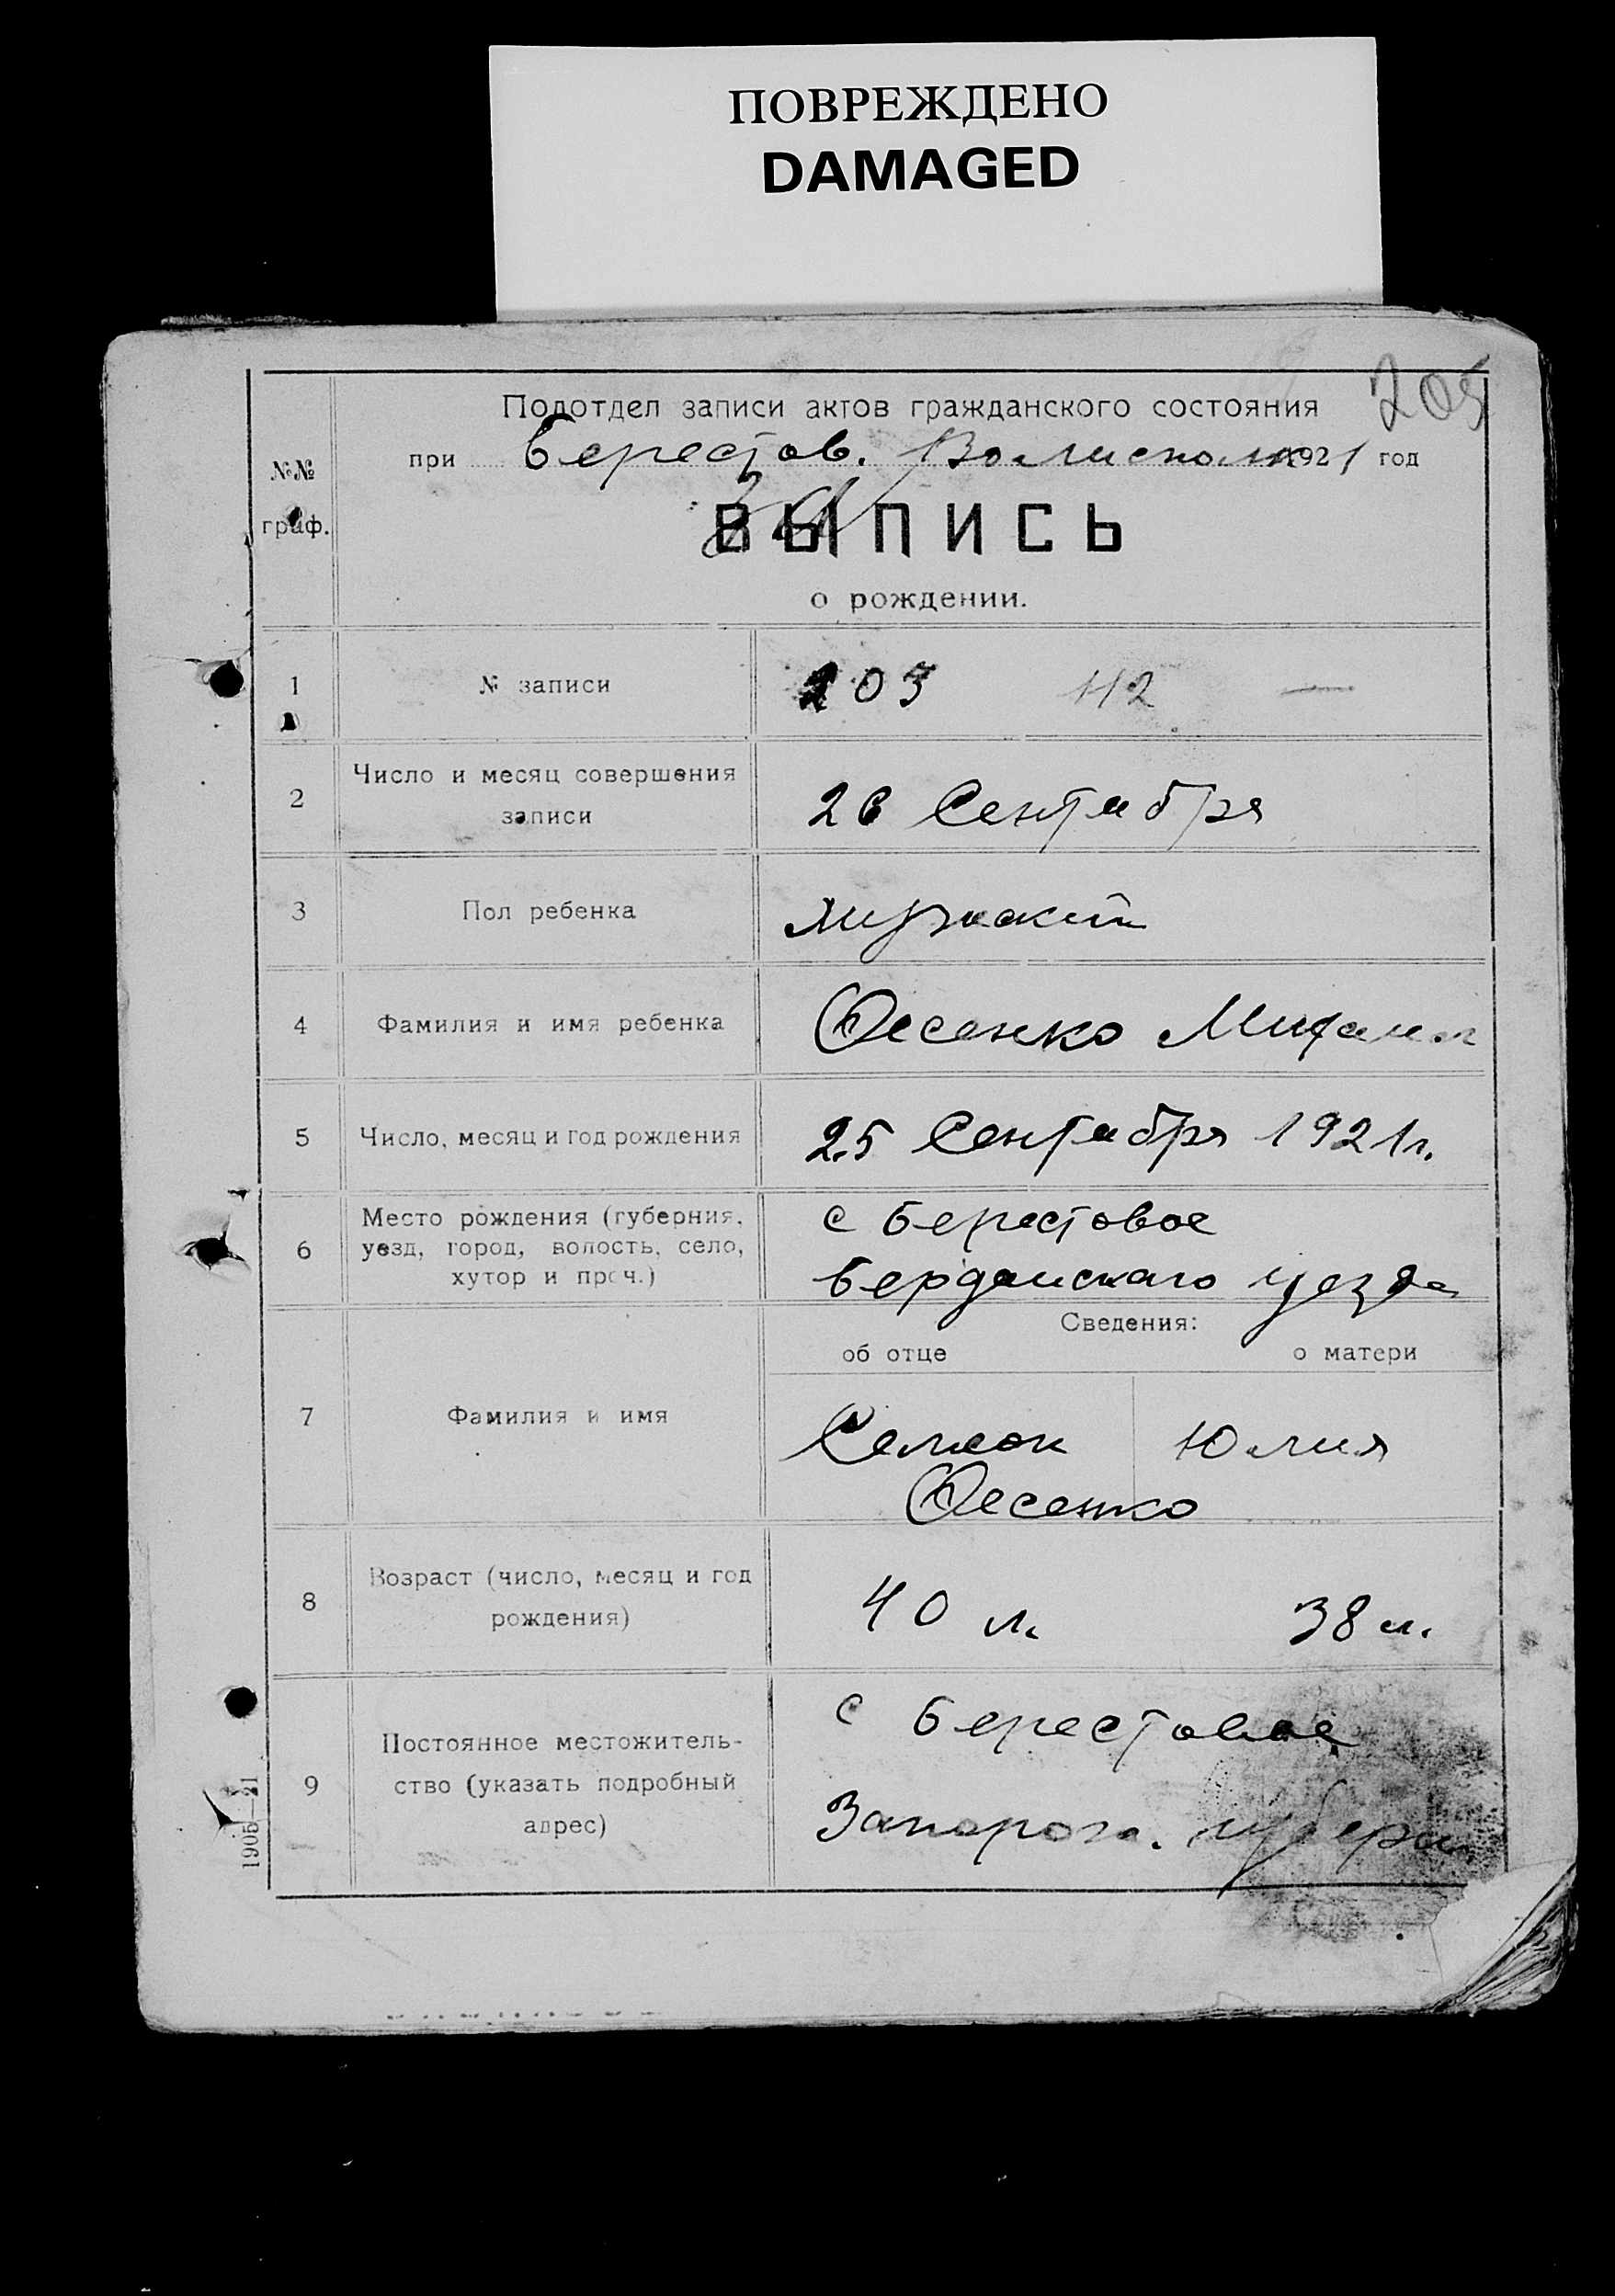 ПОВРЕЖДЕНО
DAMAGED
205
Подотдел записи актов гражданского состояния
при Берестов. Волисполк 1921 год
№№
граф.
ВЫПИСЬ
о рождении.
1 № записи 203 112 —
2 Число и месяц совершения
записи
26 Сентября
3 Пол ребенка мужской
4 Фамилия и имя ребенка Фесенко Михаил
5 Число, месяц и год рождения 25 Сентября 1921 г.
6 Место рождения (губерния,
уезд, город, волость, село,
хутор и проч.)
с Берестовое
Бердянскаго уезда
Сведения:
об отце о матери
7 Фамилия и имя
Семен Юлия
Фесенко
8 Возраст (число, месяц и год
рождения)
40 л. 38 л.
9 Постоянное местожитель-
ство (указать подробный
адрес)
с Берестовое
Запорож. губерн.
1905—21